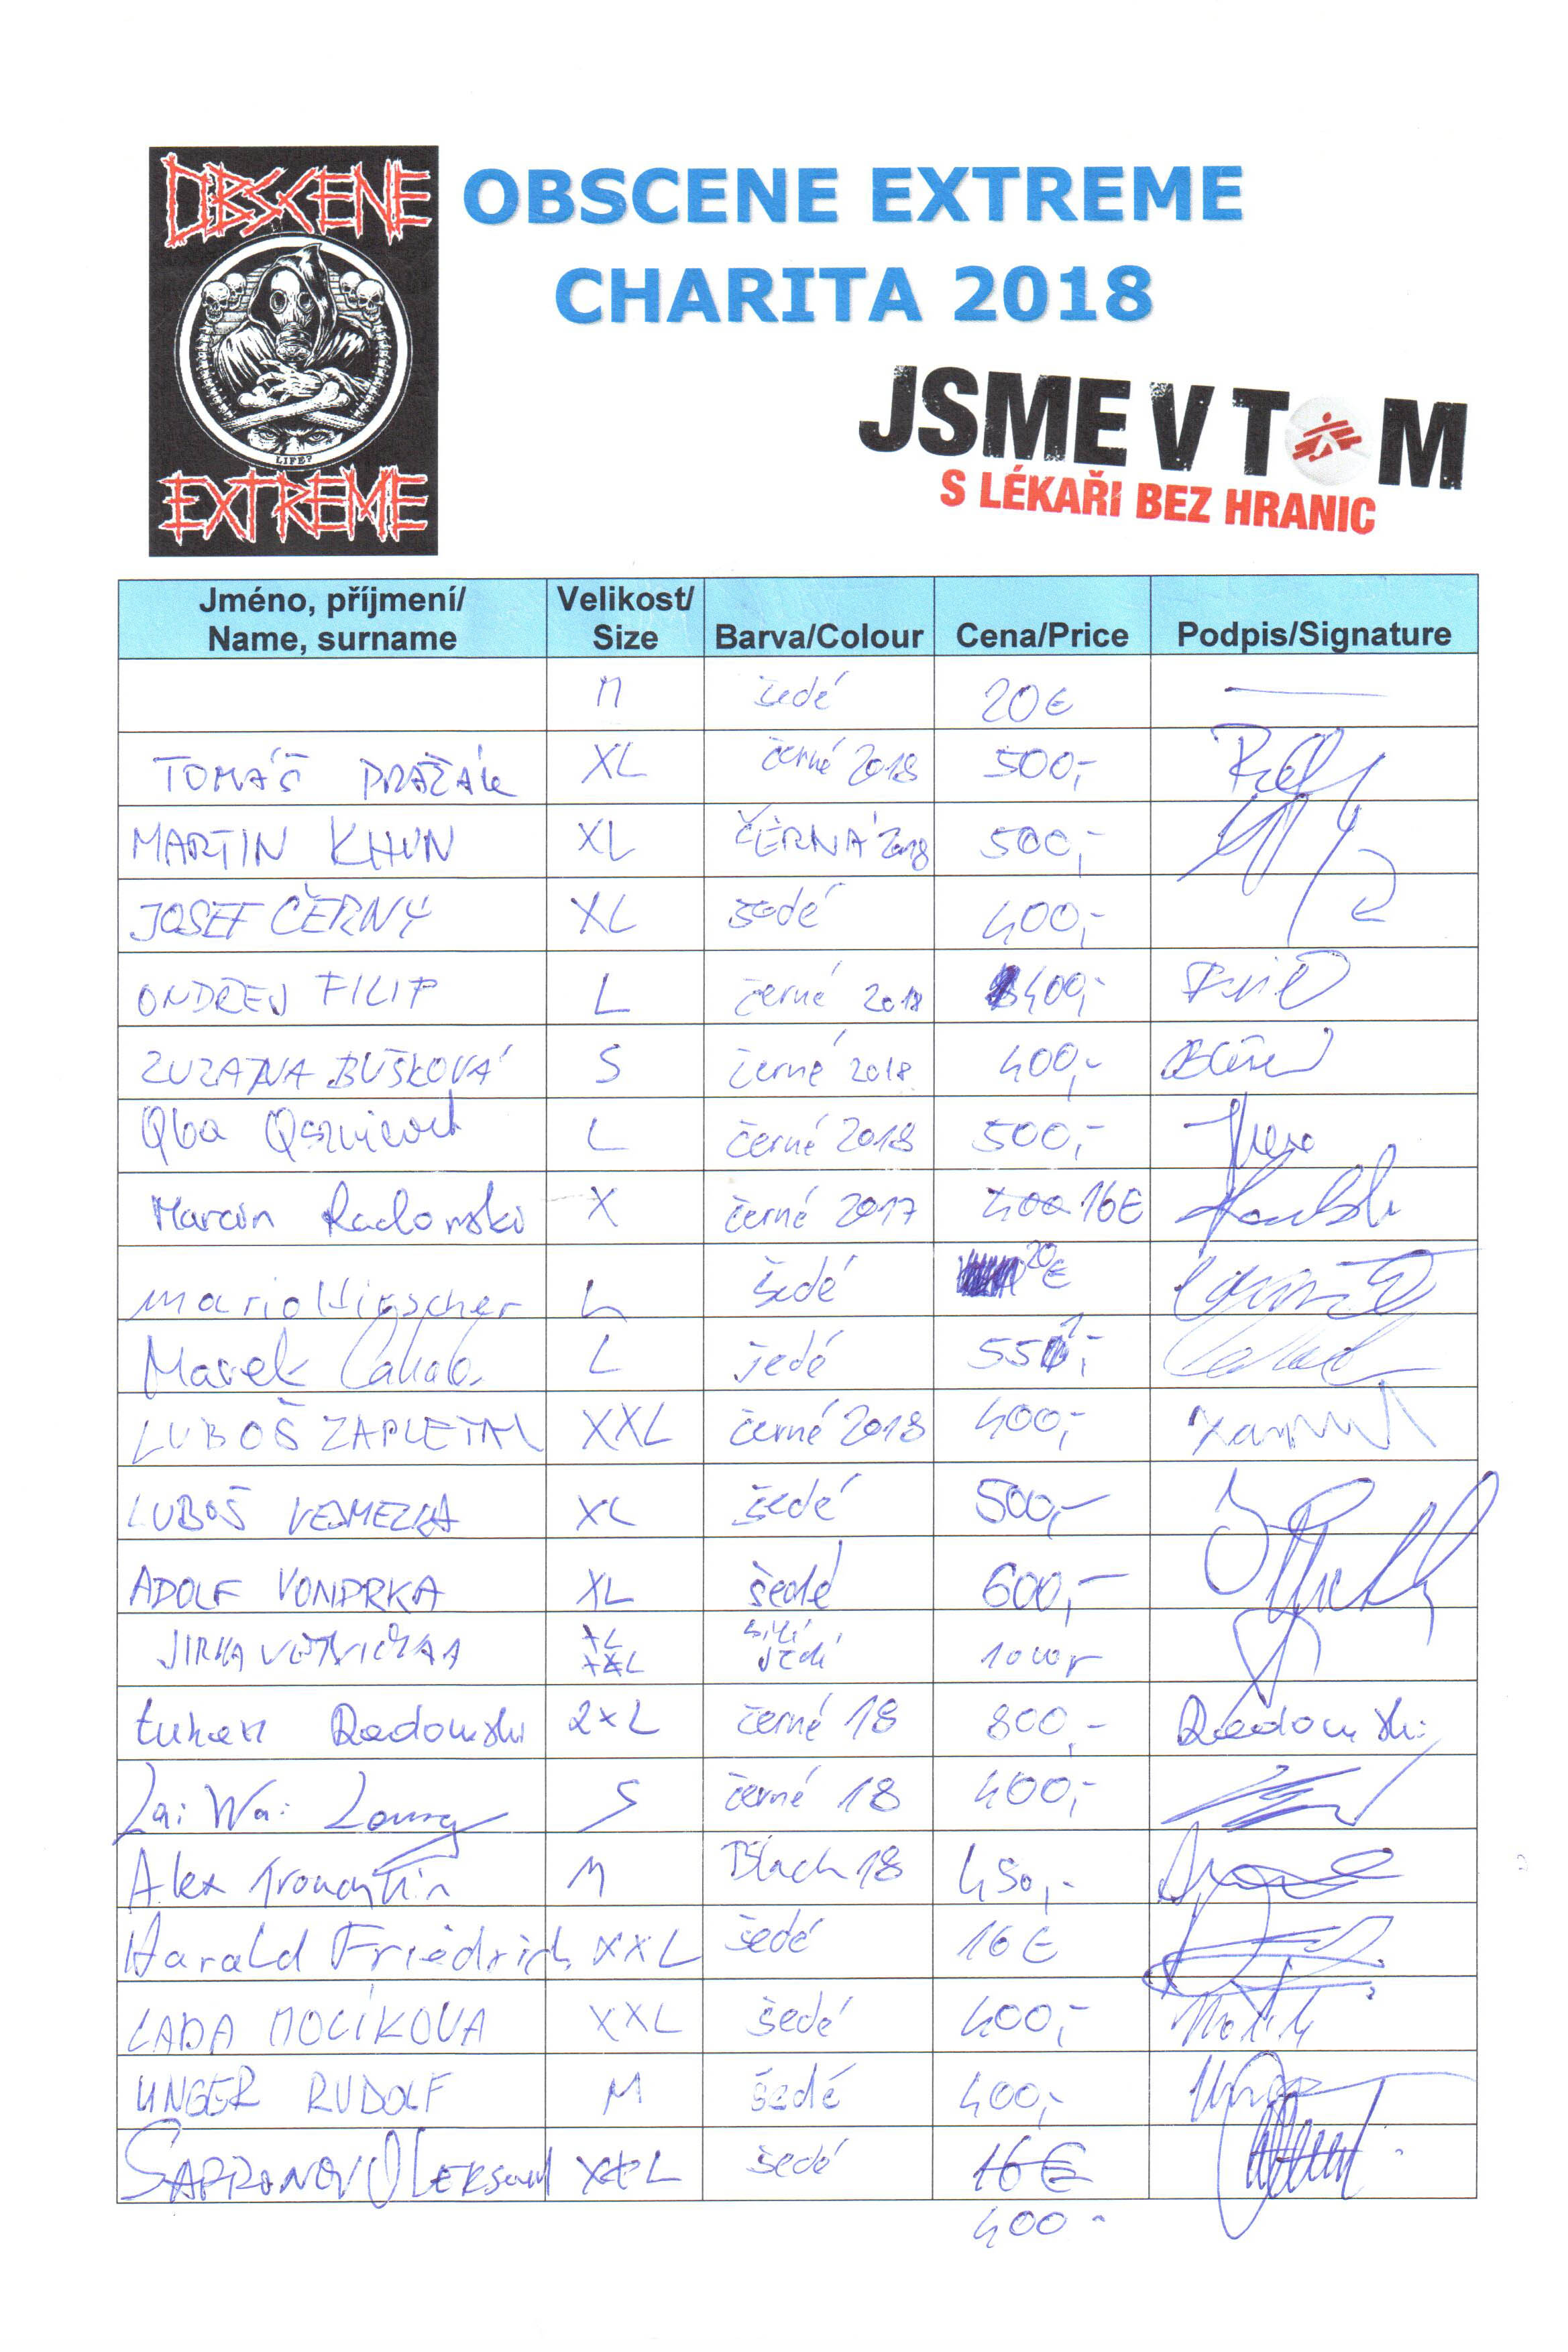 OBSCENE
EXTREME
LIFE?
OBSCENE EXTREME
CHARITA 2018
JSME V TOM
S LÉKAŘI BEZ HRANIC
Jméno, příjmení/ Name, surname Velikost/ Size Barva/Colour Cena/Price Podpis/Signature
M šedé 20€
TOMÁŠ PRAŽÁK XL černé 2018 500,-
MARTIN KHUN XL ČERNÁ 2018 500,-
JOSEF ČERNÝ XL šedé 400,-
ONDŘEJ FILIP L černé 2018 400,-
ZUZANA BUŠKOVÁ S černé 2018 400,-
Qba L černé 2018 500,-
Marcin Radomski X černé 2017 400 16€
mario Hirscher L šedé 20€
Marek L šedé
LUBOŠ ZAPLETAL XXL černé 2018 400,-
LUBOŠ XL šedé 500,-
ADOLF VONDRKA XL šedé 600,-
JIRKA XL XXL šedé
Radomski 2XL černé 18 800,- Radomski
Lai Wai S černé 18 400,-
Alex M Black 18 450,-
Harald Friedrich XXL šedé 16€
LADA MOCÍKOVA XXL šedé 400,-
UNGER RUDOLF M šedé 400,-
SAPRONOV XXL šedé 16€
400-